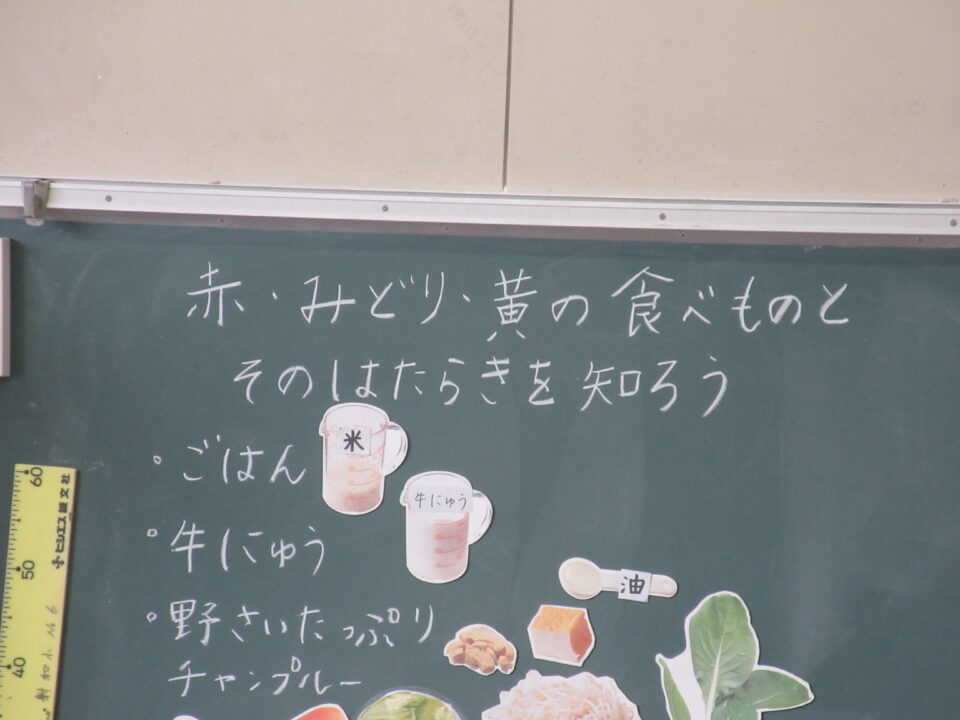 赤・みどり・黄の食べものと
そのはたらきを知ろう
・ごはん
米
牛にゅう
・牛にゅう
油
・野さいたっぷり
チャンプルー
60
50
40